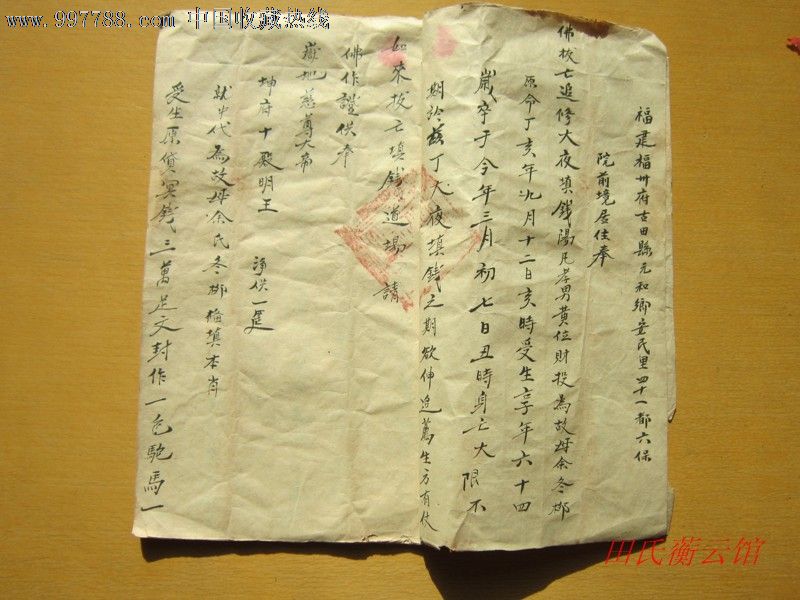 www.997788.com 中国收藏热线
福建福州府古田縣元和鄉安民里四十一都六保
院前境居住奉
佛拔亡追修大夜填錢陽凡孝男黃位財投為故母余冬
原命丁亥年九月十二日亥時受生享年六十四
歲卒于今年三月初七日丑時身亡大限不
期於兹丁大夜填錢之期欲伸追薦生方有伏
如來拔亡填錢道場 請
佛作證供奉
嶽地慈尊大帝
坤府十殿明王 淨供一筵
就中代為故母余氏冬備填本肖
受生原貸冥錢三萬足文封作一包馳馬一
田氏蘅云馆